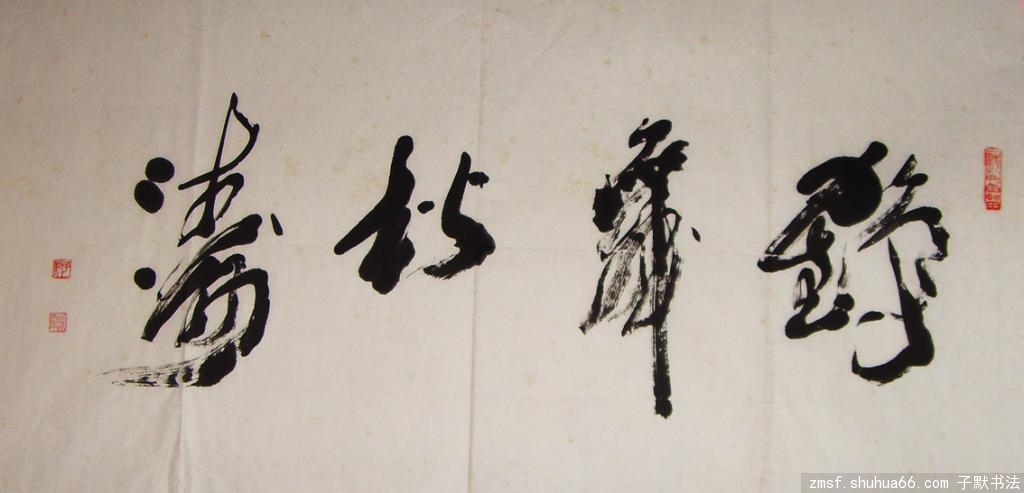 鶴舞松濤
zmsf.shuhua66.com 子默书法